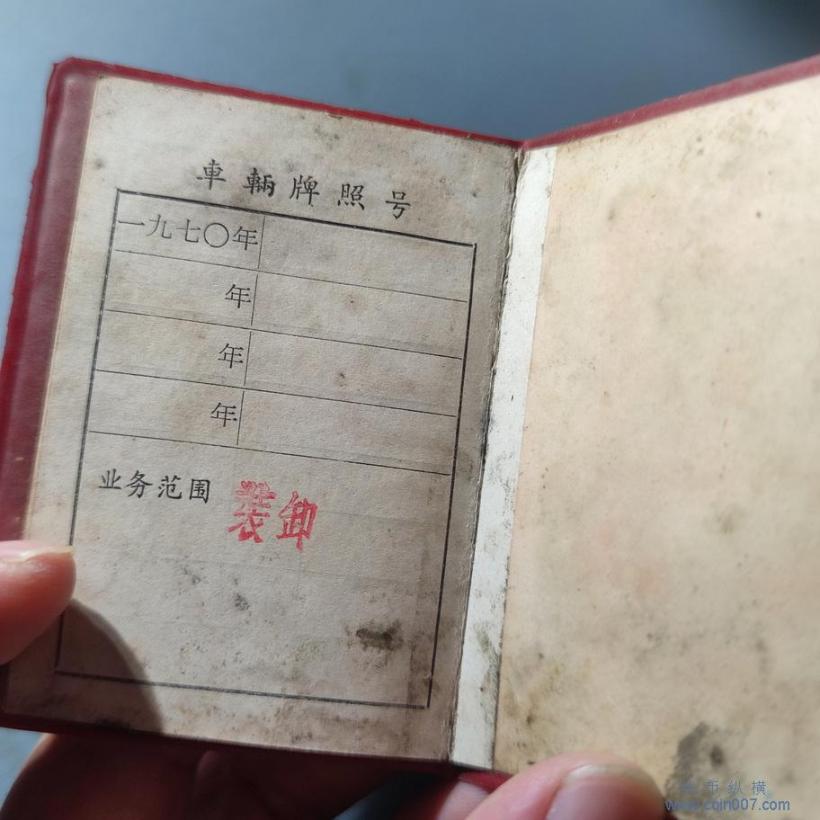 車輛牌照号
一九七〇年
年
年
年
业务范围 装卸
币纵横
www.coin007.com